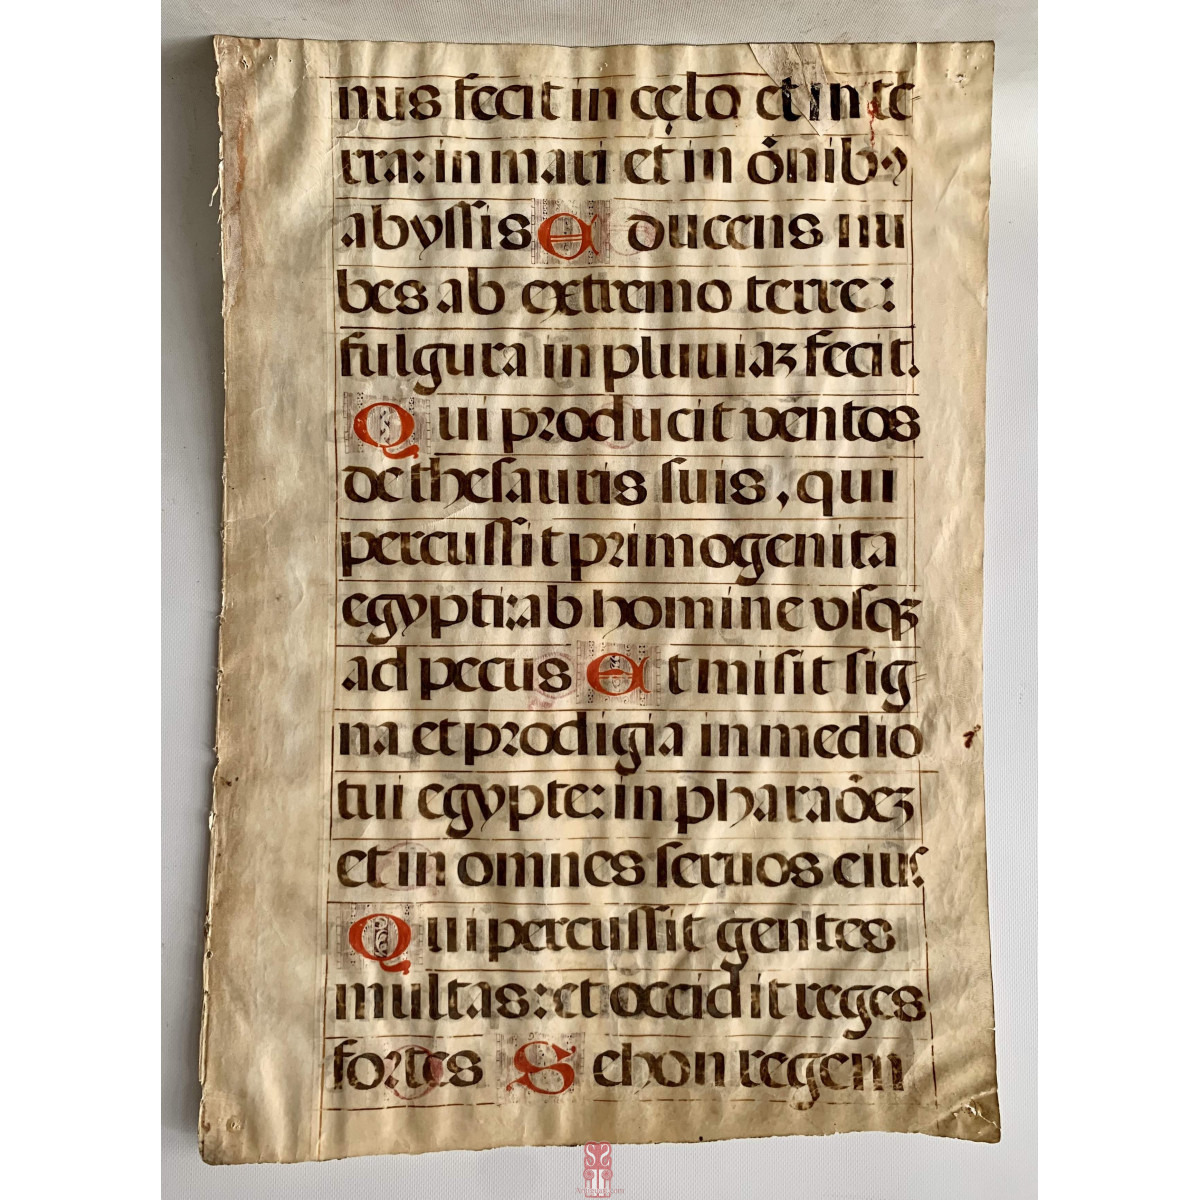 nus fecit in cęlo et in te
rra: in mari et in õnibꝰ
abyſſis A ducens nu
bes ab extremo terre:
fulgura in pluuiaꝫ fecit.
Q ui producit ventos
de theſauris ſuis, qui
percuſſit primogenita
egypti: ab homine vſqꝫ
ad pecus E t miſit ſig
na et prodigia in medio
tui egypte: in pharaõeꝫ
et in omnes ſeruos eius.
Q ui percuſſit gentes
multas: et occidit reges
fortes S ehon regem